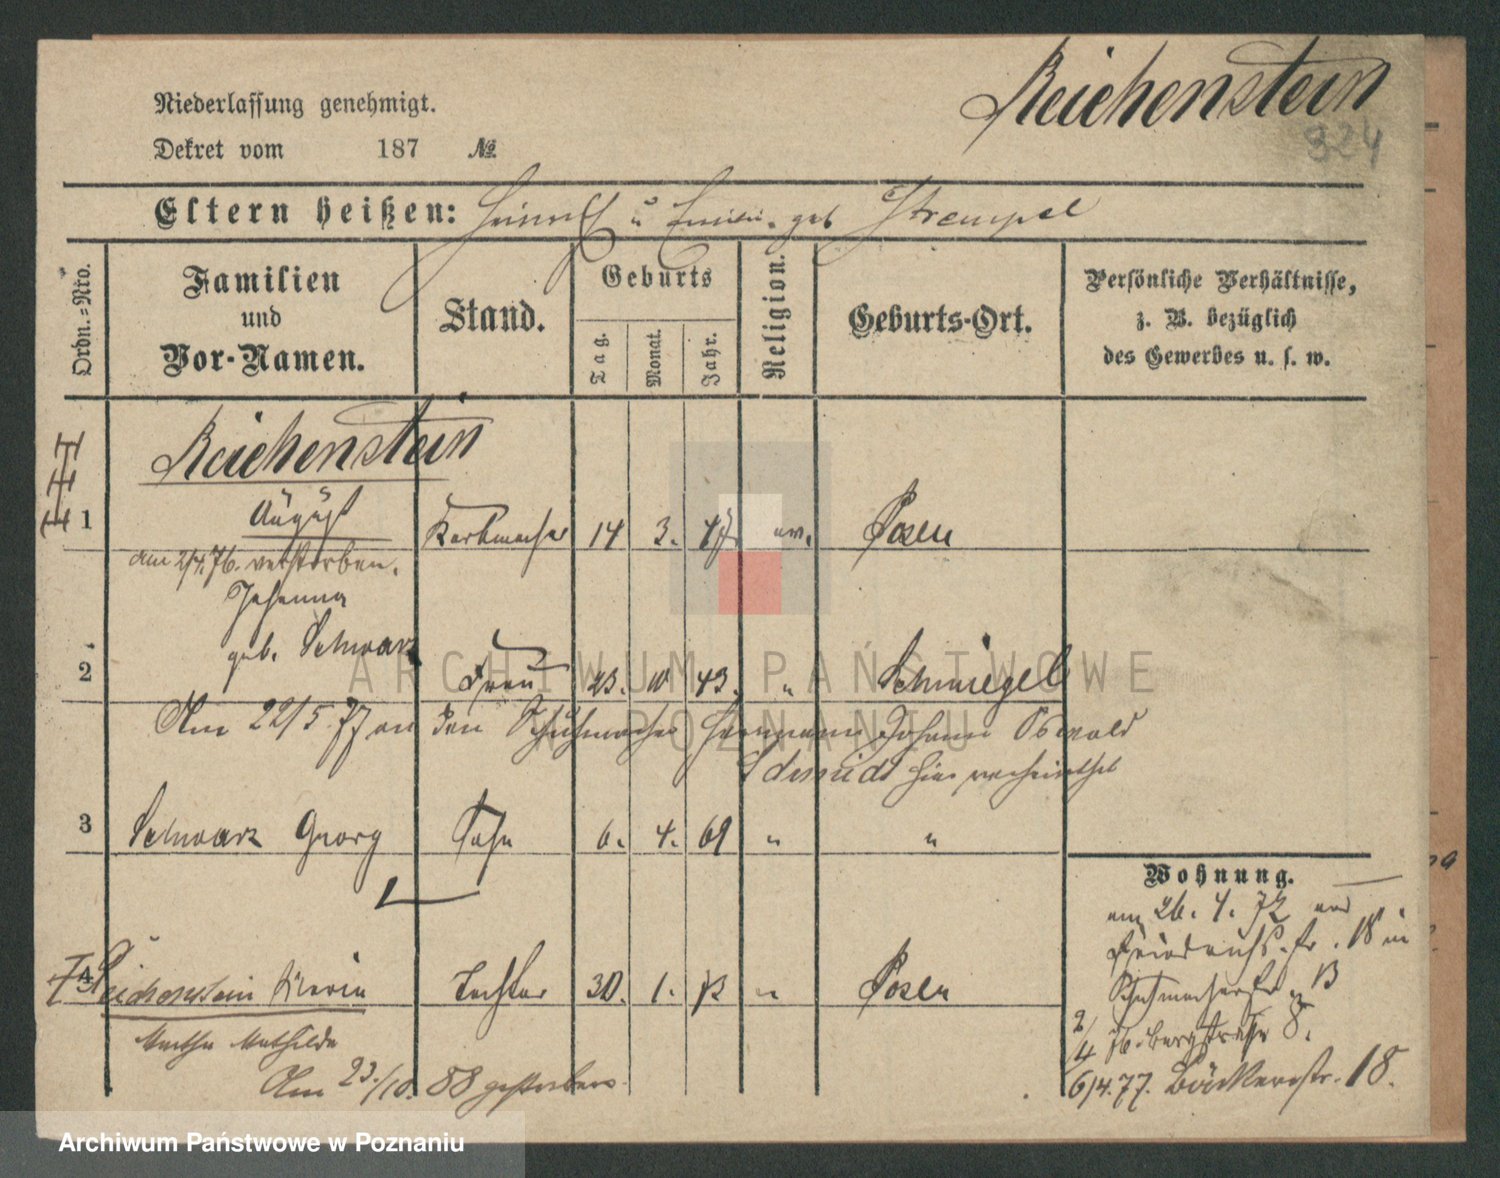 Reichenstein
324
Niederlassung genehmigt.
Dekret vom 187 №
Eltern heißen: Heinrich u Emilie. geb Strempel
Ordn.=Nro.
Familien
und
Vor-Namen.
Stand.
Geburts
Tag.
Monat.
Jahr.
Religion.
Geburts-Ort.
Persönliche Verhältnisse,
z. B. bezüglich
des Gewerbes u. s. w.
Reichenstein
1 August Korbmacher 14 3. ev. Posen
am 2/4.76. verstorben.
Johanna
geb. Schwarz
2 Frau 23. 10 43. " Schmiegel
Am 22/5.77 an den Schuhmacher Hermann Johann Oswald
Schmidt hier verheirathet
3 Schwarz Georg Sohn 6. 4. 69 " "
Wohnung.
am 26. 4. 72
Friedrichs.str. 18 in
Schuhmacherstr 13
4 Reichenstein Maria Tochter 30. 1. 73 " Posen
Martha Mathilde
2/4 76. Bergstraße 8.
Am 23./10. 88 gestorben.
6/4.77. Bäckerstr. 18.
ARCHIWUM PAŃSTWOWE
W POZNANIU
Archiwum Państwowe w Poznaniu